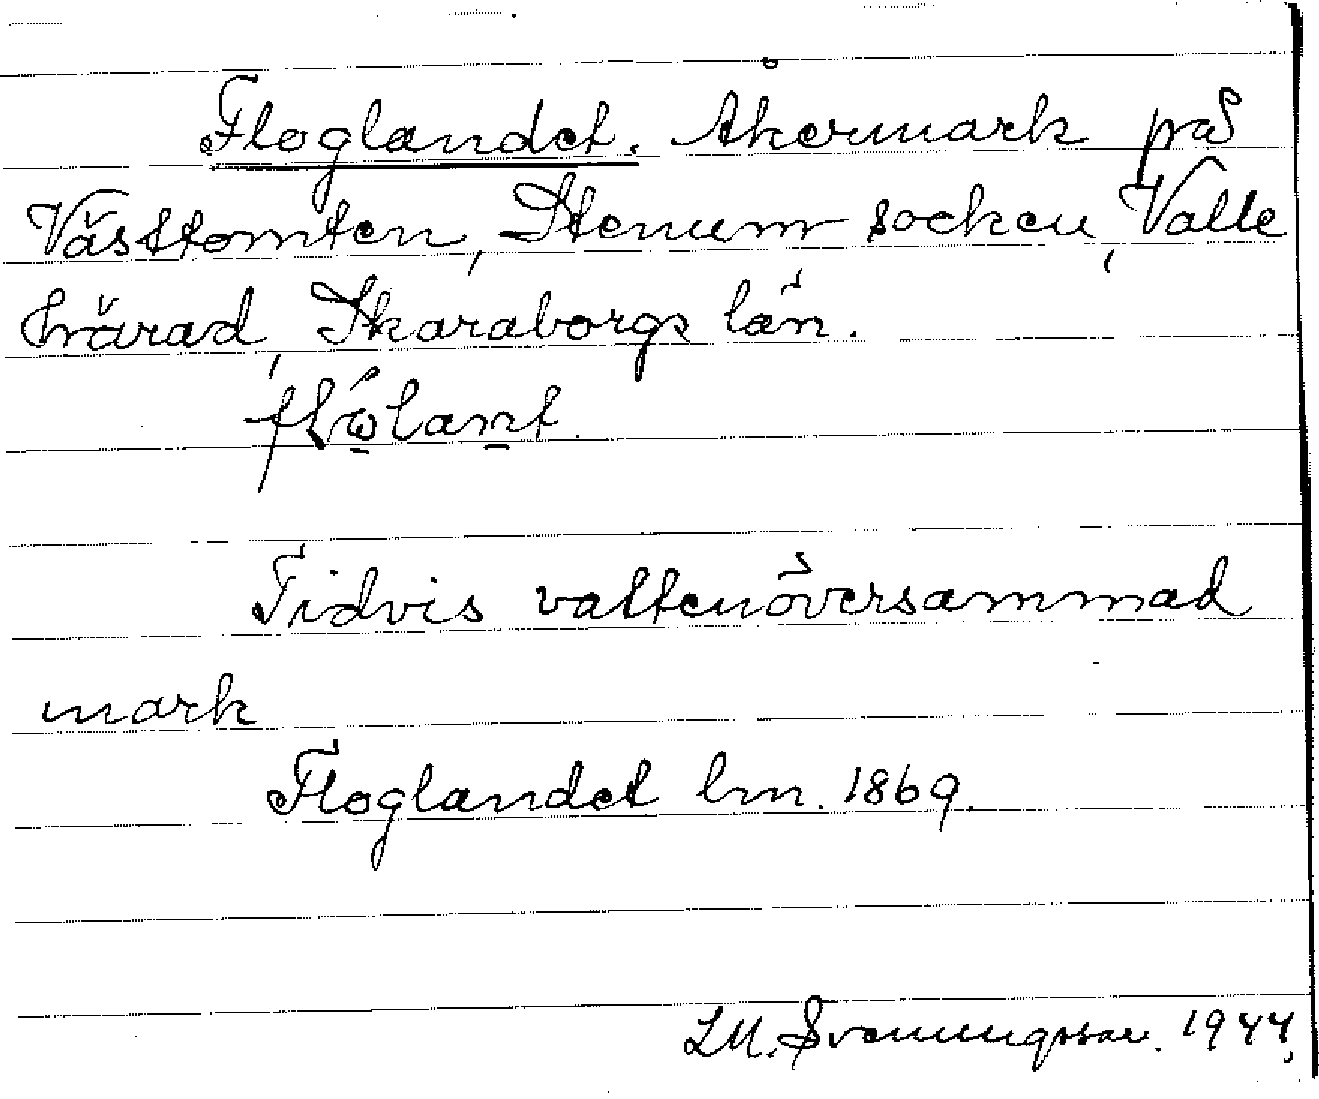 Floglandet. Åkermark på
Västtomten, Stenum socken, Valle
härad, Skaraborgs län.
Tidvis vattenöversammad
mark
Floglandet lm. 1869.
LM. Svenungsson. 1944.